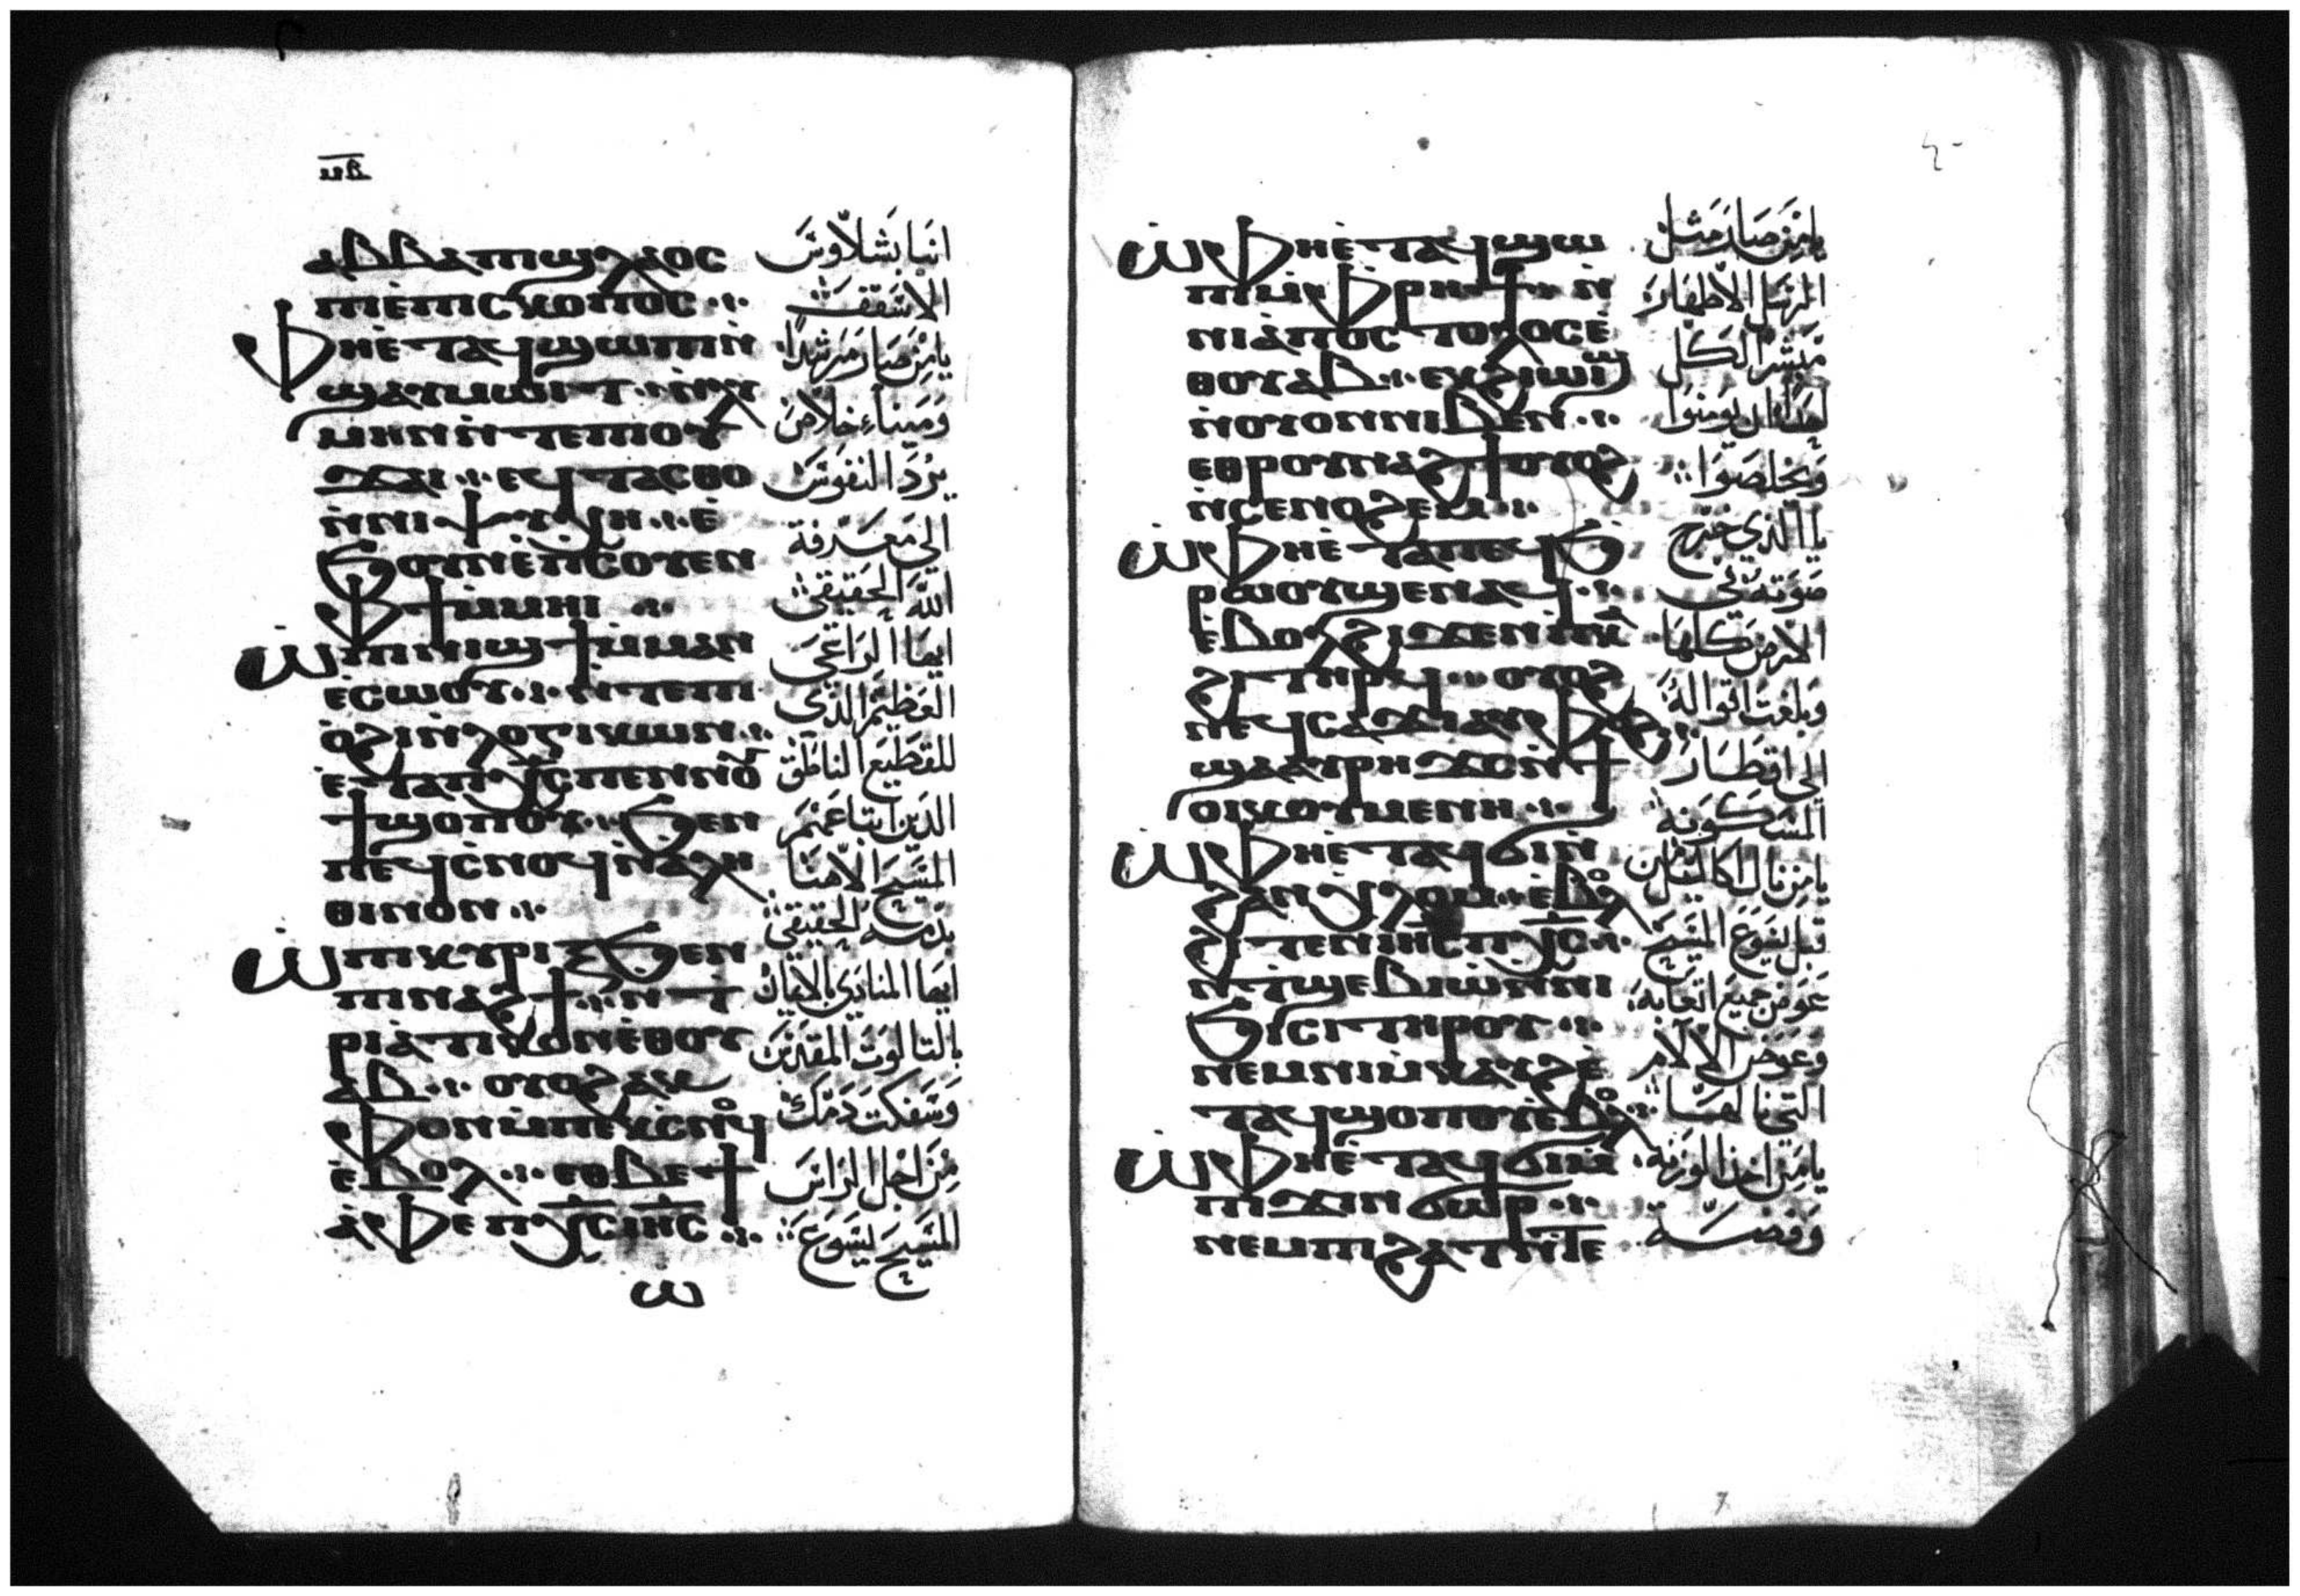 ⲁⲃⲃⲁ ⲡⲓϣⲗⲁⲟⲥ
ⲡⲓⲉⲡⲓⲥⲕⲟⲡⲟⲥ
ⲫⲏⲉⲧⲁϥϣⲱⲡⲓ ⲛ
ϣⲁⲩⲙⲱⲓⲧ
ⲗⲩⲙⲏⲛ ⲛⲧⲉ ⲡⲓⲟⲩ
ϫⲁⲓ ⲉϥⲧⲁⲥⲑⲟ
ⲛⲛⲓⲯⲩⲭⲏ ⲉ
ϧⲟⲩⲛ ⲉⲡⲥⲟⲩⲉⲛ
ⲫϯ ⲙⲙⲏⲓ
ⲱ ⲡⲓⲛⲓϣϯ ⲙⲙⲁⲛ
ⲉⲥⲱⲟⲩ ⲛⲧⲉ ⲡⲓ
ⲟϩⲓ ⲛⲗⲟⲅⲓⲕⲱⲛ
ⲉⲧⲁ ⲡⲭⲥ ⲡⲉⲛⲛⲟⲩ
ϯ ϣⲟⲡⲟⲩ ϧⲉⲛ
ⲡⲉϥⲥⲛⲟϥ ⲛⲁⲗⲏ
ⲑⲓⲛⲟⲛ
ⲱ ⲡⲓⲕⲩⲣⲓⲝ ϧⲉⲛ
ⲡⲓⲛⲁϩϯ ⲛϯ
ⲣⲓⲁⲧⲓⲕⲟⲛ ⲉⲑⲟⲩ
ⲁⲃ ⲟⲩⲟϩ ⲁⲕ
ⲫⲟⲛ ⲙⲡⲉⲕⲥⲛⲟϥ
ⲉⲃⲟⲗ ⲉⲑⲃⲉ ϯ
ⲁⲫⲉ ⲡⲭⲥ ⲓⲏⲥ
ⲱ
انبا بشلاوس
الاسقف
يا من صار مرشدا
وميناء خلاص
يرد النفوس
الى معرفة
الله الحقيقي
ايها الراعي
العظيم الذي
للقطيع الناطق
الذين ابتاعهم
المسيح الاهنا
بدمه الحقيقي
ايها المنادي بالامانه
بالتالوت المقدس
وسفكت دمك
من اجل الراس
المسيح يسوع
ⲱ ⲫⲏⲉⲧⲁϥϣⲱ
ⲡⲓ ⲙⲫⲣⲏϯ ⲛ
ⲛⲓⲁⲡⲟⲥⲧⲟⲗⲟⲥ ⲉ
ⲑⲟⲩⲁⲃ ⲉⲩϩⲓⲱⲓϣ
ⲛⲟⲩⲟⲛ ⲛⲓⲃⲉⲛ
ⲉⲑⲣⲟⲩⲛⲁϩϯ ⲟⲩⲟϩ
ⲛⲥⲉⲛⲟϩⲉⲙ
ⲱ ⲫⲏⲉⲧⲁ ⲡⲉϥϧ
ⲣⲱⲟⲩ ϣⲉⲛⲁϥ
ⲉⲃⲟⲗ ϩⲓϫⲉⲛ ⲡⲕⲁ
ϩⲓ ⲧⲏⲣϥ ⲟⲩⲟϩ
ⲛⲉϥⲥⲁϫⲓ ⲁⲩⲫⲟϩ
ϣⲁ ⲁⲩⲣⲏϫⲥ ⲛϯ
ⲟⲓⲕⲟⲩⲙⲉⲛⲏ
ⲱ ⲫⲏⲉⲧⲁϥϭⲓ ⲛ
ϩⲁⲛⲭⲗⲟⲙ ⲉⲃⲟⲗ
ϩⲓⲧⲉⲛ ⲓⲏⲥ ⲡⲭⲥ
ⲛⲧϣⲉⲃⲓⲱ ⲛⲛⲓ
ϧⲓⲥⲓ ⲧⲏⲣⲟⲩ
ⲛⲉⲙ ⲛⲓⲙⲕⲁⲩϩ ⲉ
ⲧⲁϥϣⲟⲡⲟⲩ ⲉⲣⲟϥ
ⲱ ⲫⲏⲉⲧⲁϥϭⲓ ⲙ
ⲡⲓϫⲓⲛϭⲱⲣ
ⲛⲉⲙ ⲡⲓϩⲁⲧ ⲛⲧⲉ
يا من صار مثل
الرسل الاطهار
مبشر الكل
لهذا ان يومنوا
ويخلصوا
يا الذي خرج
صوته في
الارض كلها
وبلغت اقواله
الى اقطار
المسكونه
يا من نال اكاليل من
قبل يسوع المسيح
عوض جميع اتعابه
وعوض الالام
التي نالها
يا من اخذ الوزنه
وفضة